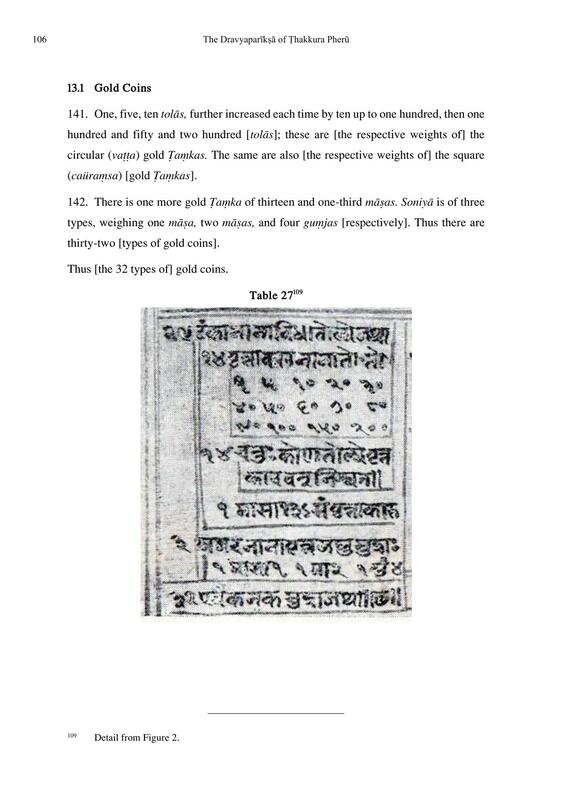 106
The Dravyaparīkṣā of Ṭhakkura Pherū
13.1 Gold Coins
141. One, five, ten tolās, further increased each time by ten up to one hundred, then one
hundred and fifty and two hundred [tolās]; these are [the respective weights of] the
circular (vaṭṭa) gold Ṭaṃkas. The same are also [the respective weights of] the square
(caüraṃsa) [gold Ṭaṃkas].
142. There is one more gold Ṭaṃka of thirteen and one-third māṣas. Soniyā is of three
types, weighing one māṣa, two māṣas, and four guṃjas [respectively]. Thus there are
thirty-two [types of gold coins].
Thus [the 32 types of] gold coins.
Table 27¹⁰⁹
टंका नाना
१४
१ ५ १० २० ३०
४० ५० ६० ७० ८०
९० १०० १५० २००
१४
१ मासा १३
३
१ मासा १ १ मा २ १ गुं ४
कनक मुद्रा जथा॥
109 Detail from Figure 2.